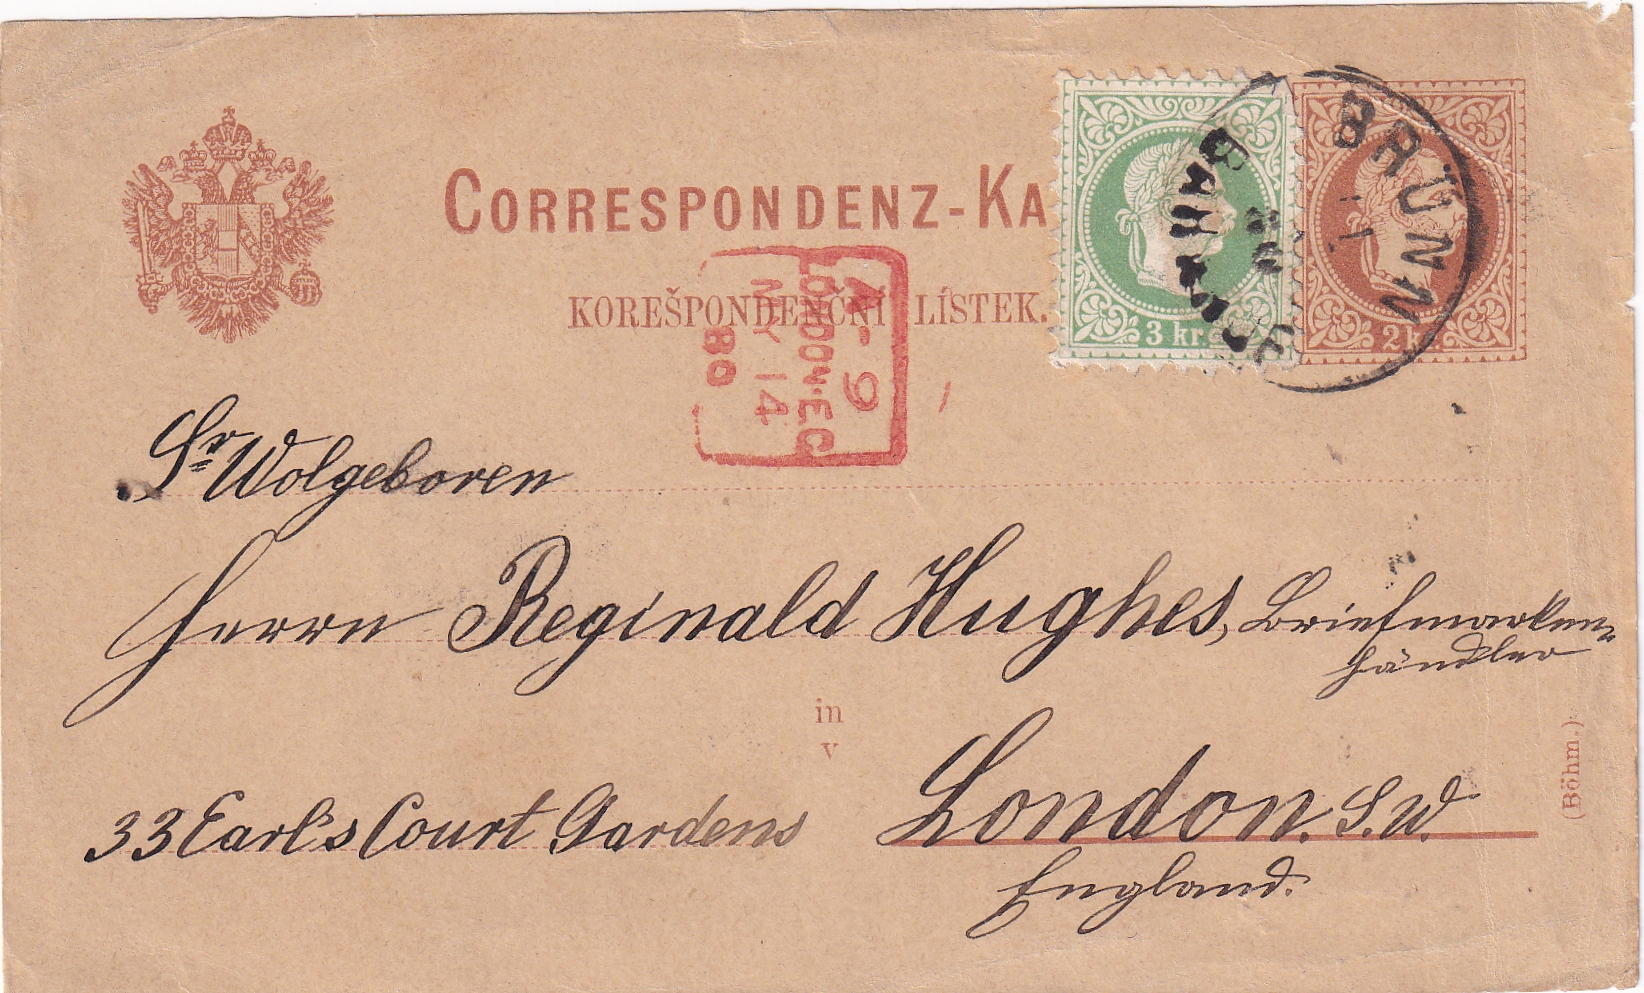 CORRESPONDENZ-KA
KOREŠPONDENČNÍ LÍSTEK.
3 kr.
2 kr.
BRÜNN
BAHNHOF
A-9
LONDON·EC
MY 14
80
Sr. Wolgeboren
Herrn Reginald Hughes, Briefmarken-
händler
in
v
33 Earl's Court Gardens
London. S.W.
England.
(Böhm.)